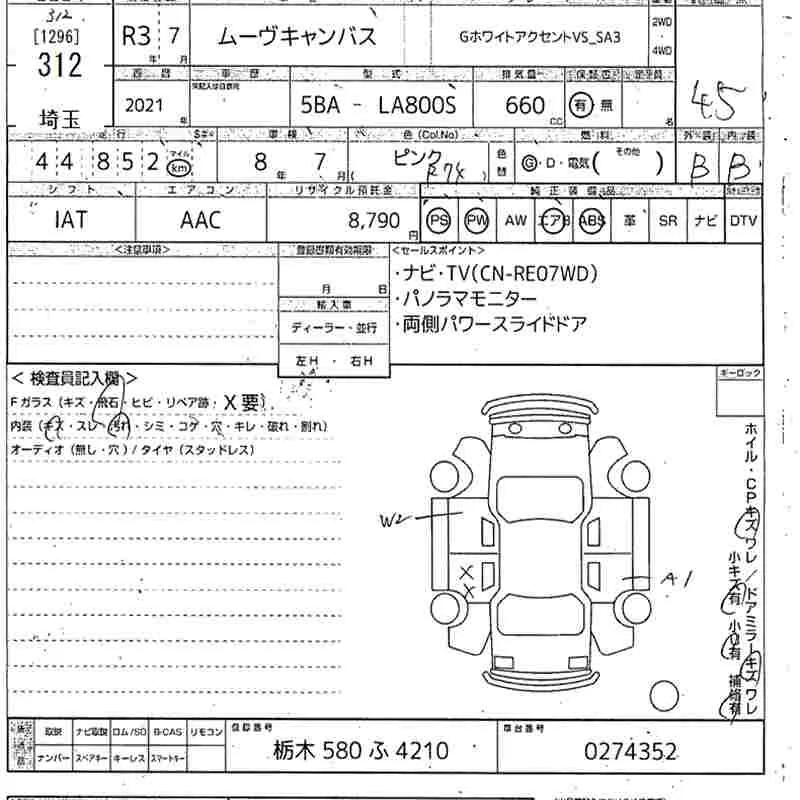 312
[1296]
312
埼玉
R3 7
年 月
ムーヴキャンバス
GホワイトアクセントVS_SA3
2WD
4WD
西暦 車歴 型式 排気量 保証書 定員
2021 年
5BA - LA800S
660 CC
有 無
名
45
走行 車検 色(Col.No) 燃料 外装 内装
44852 マイル km
8年 7月
ピンク
R74
色替
G・D・電気( その他 )
B B
シフト エアコン リサイクル預託金 純正装備品
IAT AAC 8,790円
PS PW AW エアB ABS 革 SR ナビ DTV
<注意事項> 登録書類有効期限 <セールスポイント>
月 日
・ナビ・TV(CN-RE07WD)
・パノラマモニター
・両側パワースライドドア
輸入車
ディーラー・並行
左H ・ 右H
<検査員記入欄>
Fガラス(キズ・飛石・ヒビ・リペア跡・X要)
内装(キズ・スレ・汚れ・シミ・コゲ・穴・キレ・破れ・割れ)
オーディオ(無し・穴)/タイヤ(スタッドレス)
キーロック
W2
X
X
A1
ホイル・CPキズワレ/ドアミラーキズワレ
小キズ有 小凹有 補修有
取説 ナビ取説 ロム/SD B-CAS リモコン
ナンバー スペアキー キーレス スマートキー
登録番号
栃木 580 ふ 4210
車台番号
0274352